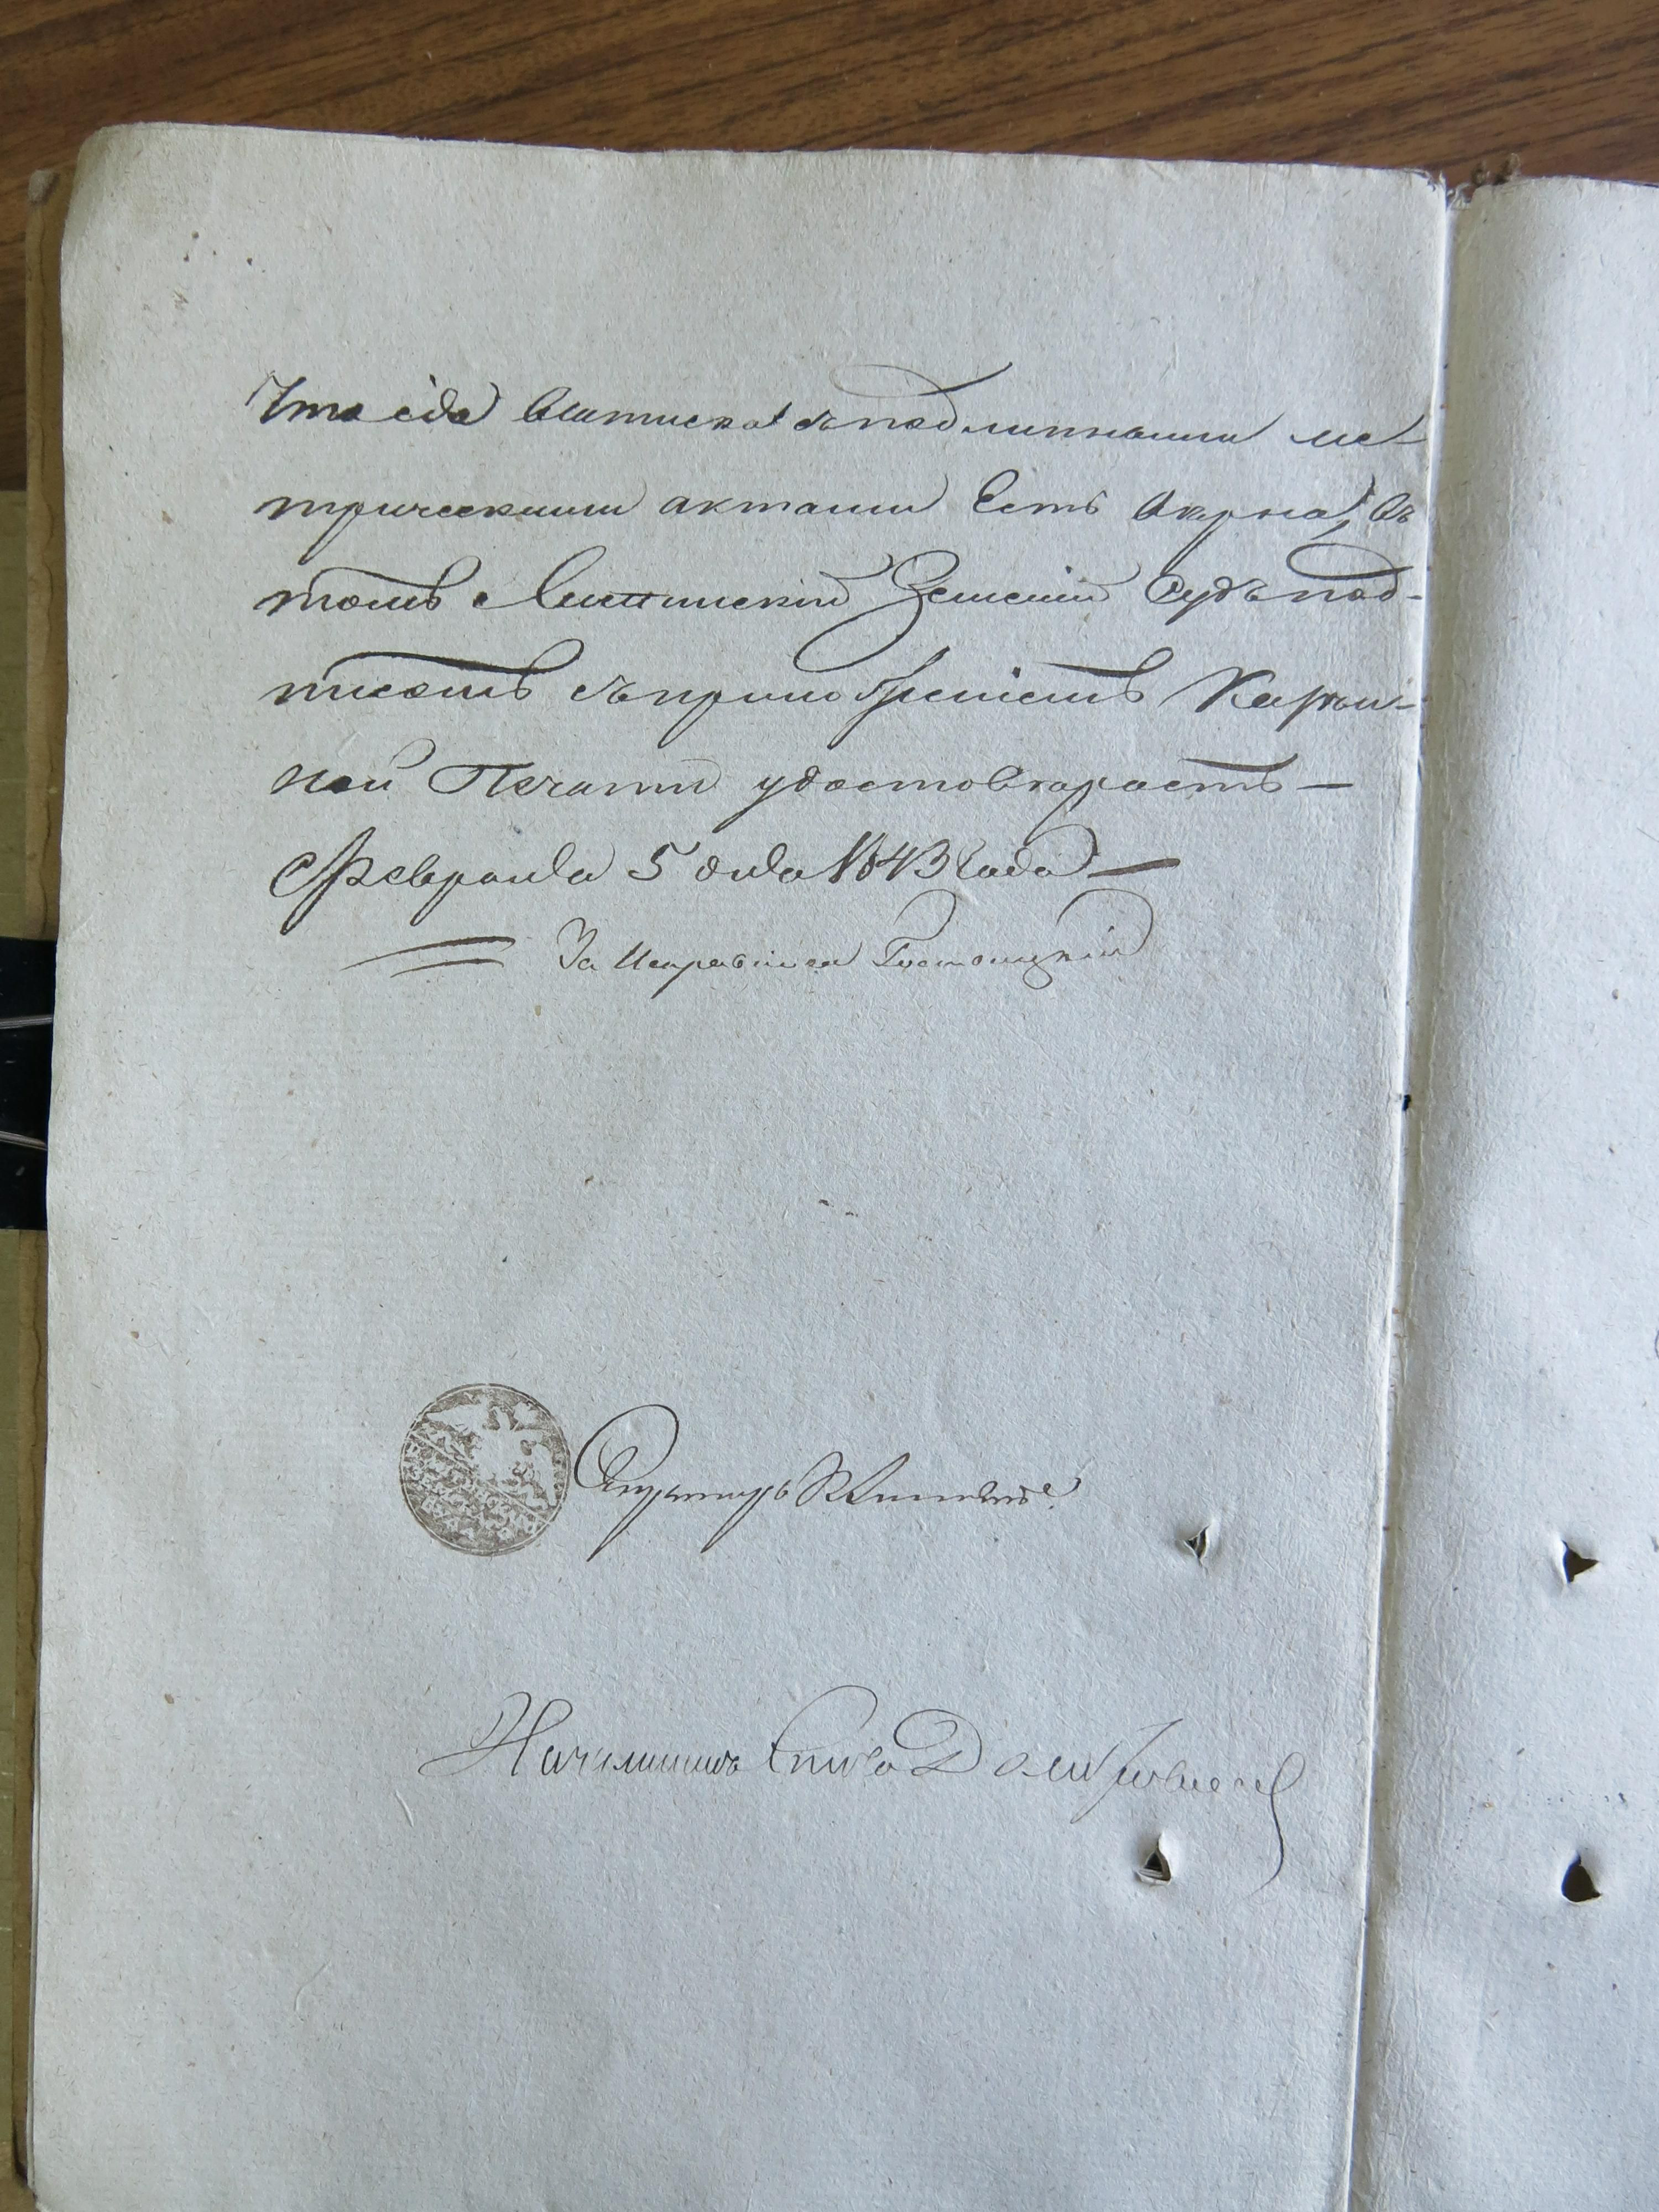 Что сія выписка съ подлинными ме-
трическими актами есть вѣрна, въ
томъ Липинскій Земскій Судъ под-
писомъ съ приложеніемъ Казен-
ной Печати удостовѣряетъ —
Февраля 5 дня 1843 Года —
За Исправника
Секретарь
Начальникъ Стола Домбровскій